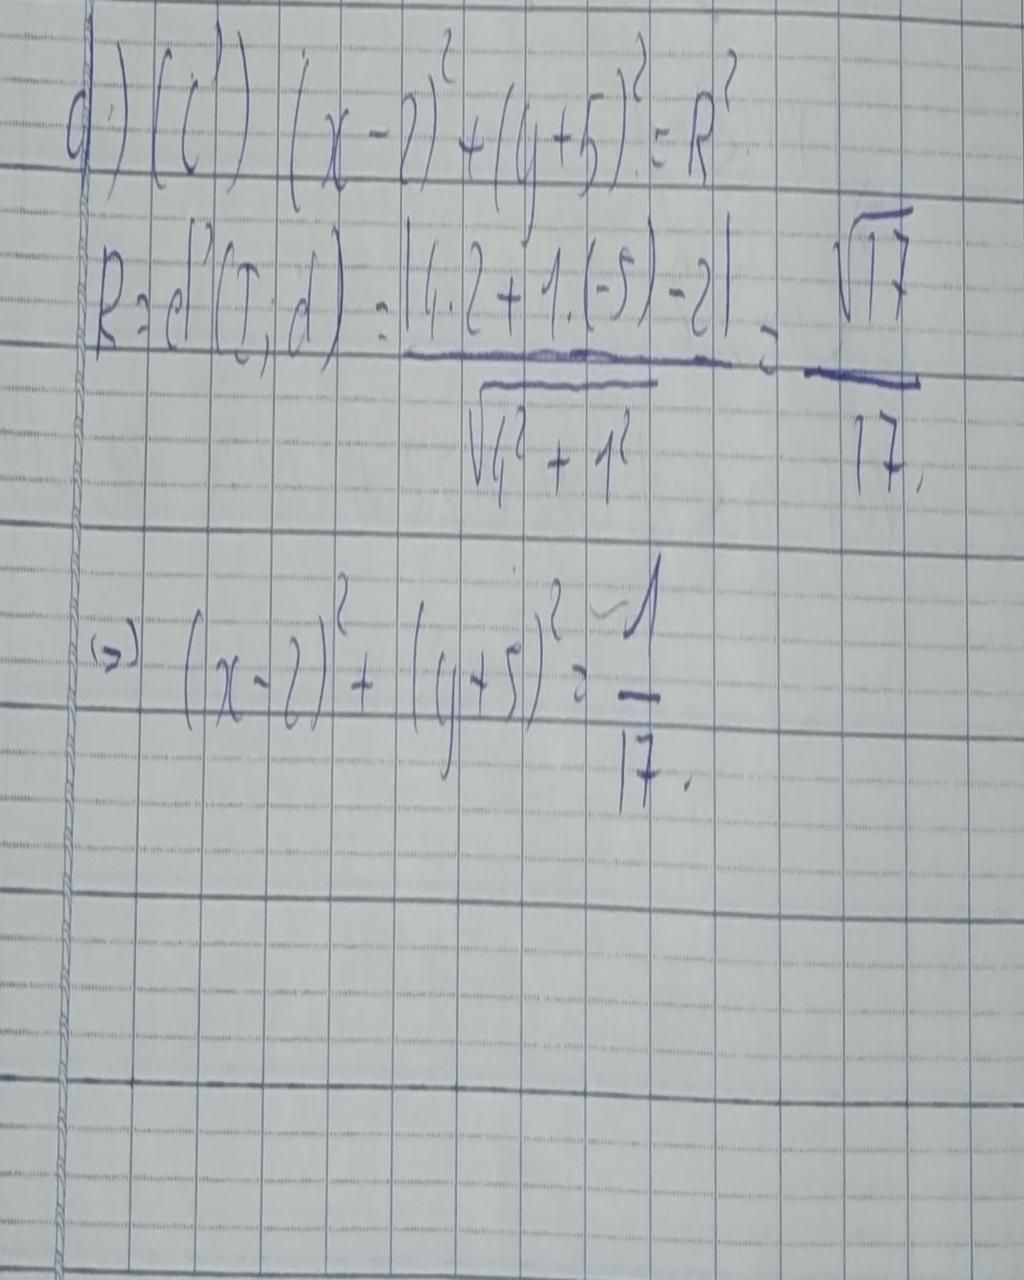 d) (C') (x-2)² + (y+5)² = R²
R = d(I; d) = |4.2 + 1.(-5) - 2| / √4² + 1² = √17 / 17.
(=) (x-2)² + (y+5)² = 1 / 17.